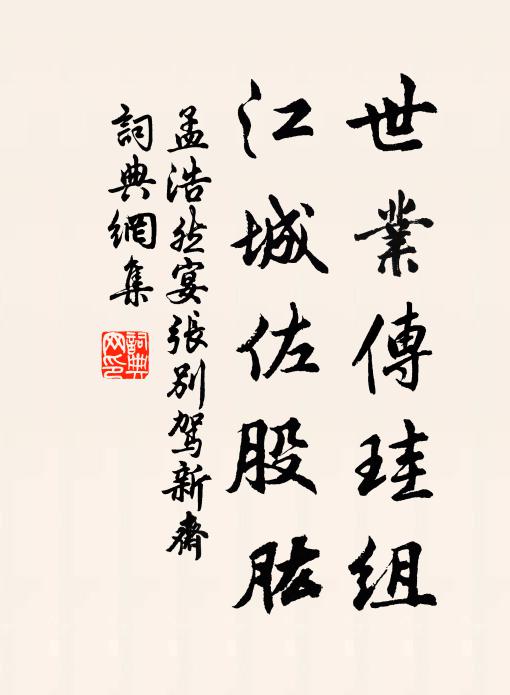 世業傳珪組
江城佐股肱
孟浩然宴張別駕新齋
詞典網集
詞典網印